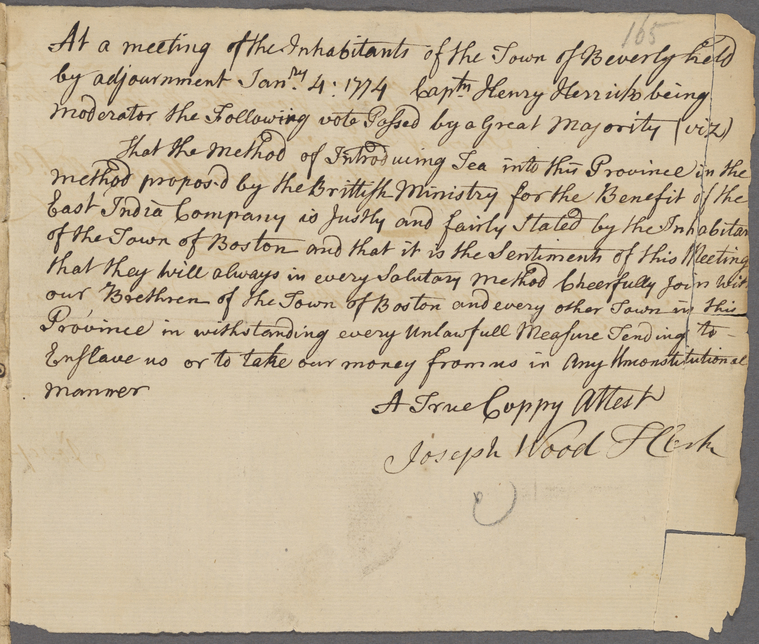 165
At a meeting of the Inhabitants of the Town of Beverly held
by adjournment Janry 4: 1774 Captn Henry Herrick being
moderator the Following vote Passed by a Great Majority (viz)
That the Method of Introducing Tea into this Province in the
method propos'd by the Brittish Ministry for the Benefit of the
East India Company is Justly and fairly Stated by the Inhabitan
of the Town of Boston and that it is the Sentiments of this Meeting
that they Will always in every Salutary Method Cheerfully Join Wit
our Brethren of the Town of Boston and every other Town in this
Province in withstanding every Unlawfull Measure Tending to
Enslave us or to take our money from us in Any Unconstitutional
manner
A True Coppy Attest
Joseph Wood T Clerk